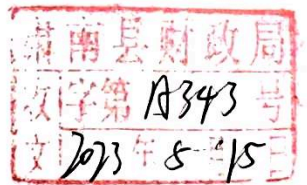 肃南县财政局
收字第A343号
文2023年8月15日